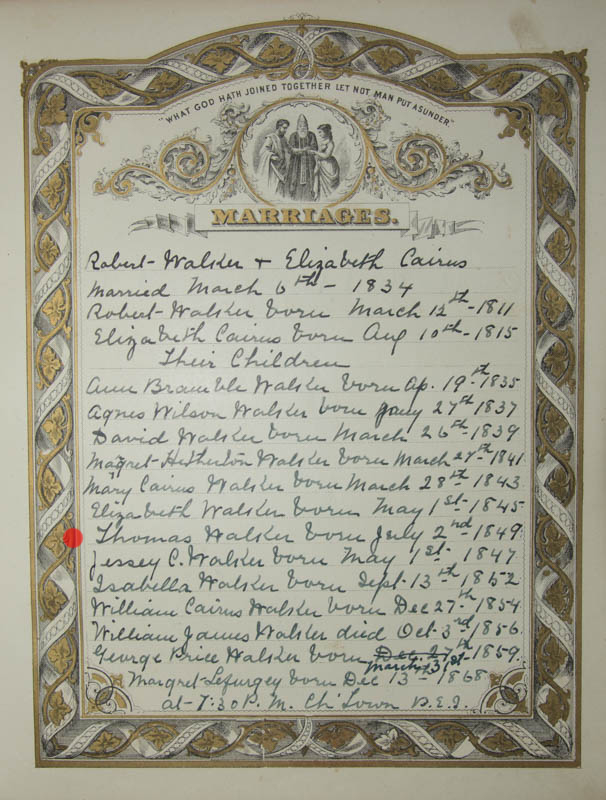 "WHAT GOD HATH JOINED TOGETHER LET NOT MAN PUT ASUNDER."
MARRIAGES.
Robert Walker + Elizabeth Cairns
Married March 6th - 1834
Robert Walker born March 12th - 1811
Elizabeth Cairns born Aug 10th - 1815
Their Children
Ann Bramble Walker born Ap. 19th 1835
Agnes Wilson Walker born Jany 27th 1837
David Walker born March 26th 1839
Magret Walker born March 1841
Mary Cairns Walker born March 28th 1843
Elizabeth Walker born May 1st - 1845
Thomas Walker born July 2nd 1849
Jessey C. Walker born May 1st - 1847
Isabella Walker born Sept 13th 1852
William Cairns Walker born Dec 27th 1854
William James Walker died Oct 3rd 1856
George Price Walker born Dec. 27th 1859
March 31st
Margret Lefurgey born Dec 13th 1868
at 7:30 P.M. Ch'Town P.E.I.